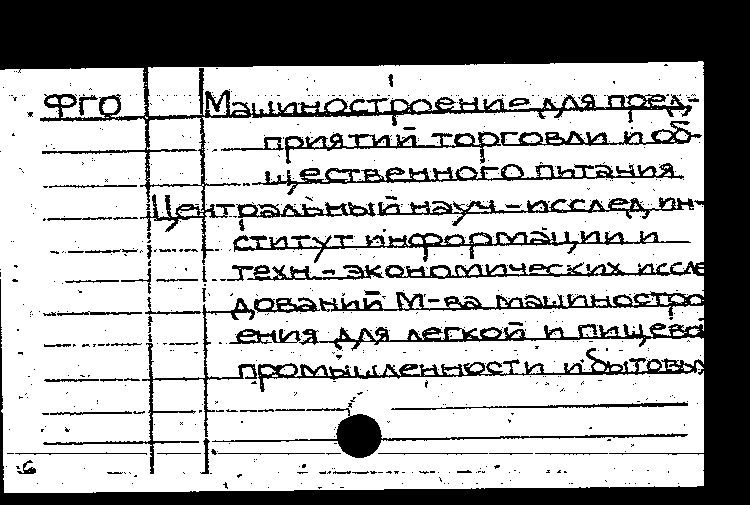 ФГО Машиностроение для пред-
приятий торговли и об-
щественного питания
Центральный науч-исслед. ин-
ститут информации и
техн.-экономических иссле
дований М-ва машиностро
ения для легкой и пищевой
промышленности и бытовы